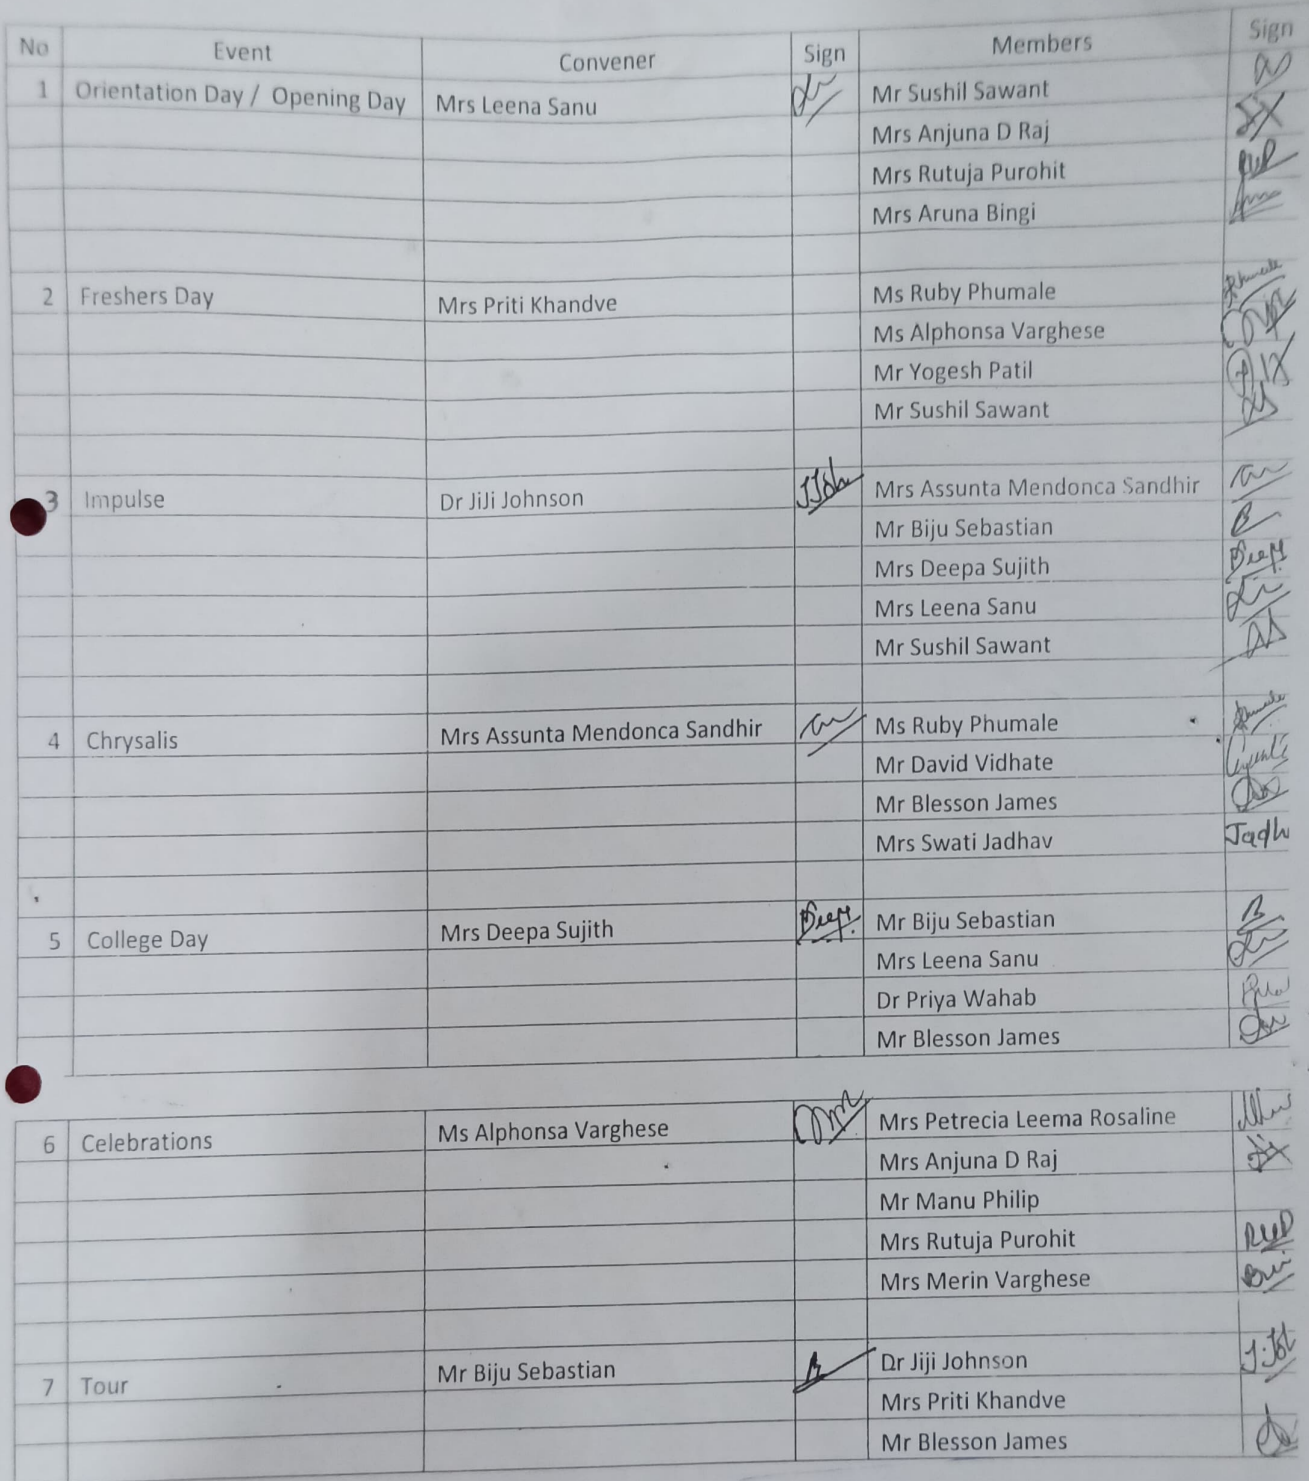 No Event Convener Sign Members Sign
1 Orientation Day / Opening Day Mrs Leena Sanu Mr Sushil Sawant
Mrs Anjuna D Raj
Mrs Rutuja Purohit
Mrs Aruna Bingi
2 Freshers Day Mrs Priti Khandve Ms Ruby Phumale
Ms Alphonsa Varghese
Mr Yogesh Patil
Mr Sushil Sawant
3 Impulse Dr JiJi Johnson Mrs Assunta Mendonca Sandhir
Mr Biju Sebastian
Mrs Deepa Sujith
Mrs Leena Sanu
Mr Sushil Sawant
4 Chrysalis Mrs Assunta Mendonca Sandhir Ms Ruby Phumale
Mr David Vidhate
Mr Blesson James
Mrs Swati Jadhav Jadh
5 College Day Mrs Deepa Sujith Mr Biju Sebastian
Mrs Leena Sanu
Dr Priya Wahab
Mr Blesson James
6 Celebrations Ms Alphonsa Varghese Mrs Petrecia Leema Rosaline
Mrs Anjuna D Raj
Mr Manu Philip
Mrs Rutuja Purohit
Mrs Merin Varghese
7 Tour Mr Biju Sebastian Dr Jiji Johnson
Mrs Priti Khandve
Mr Blesson James